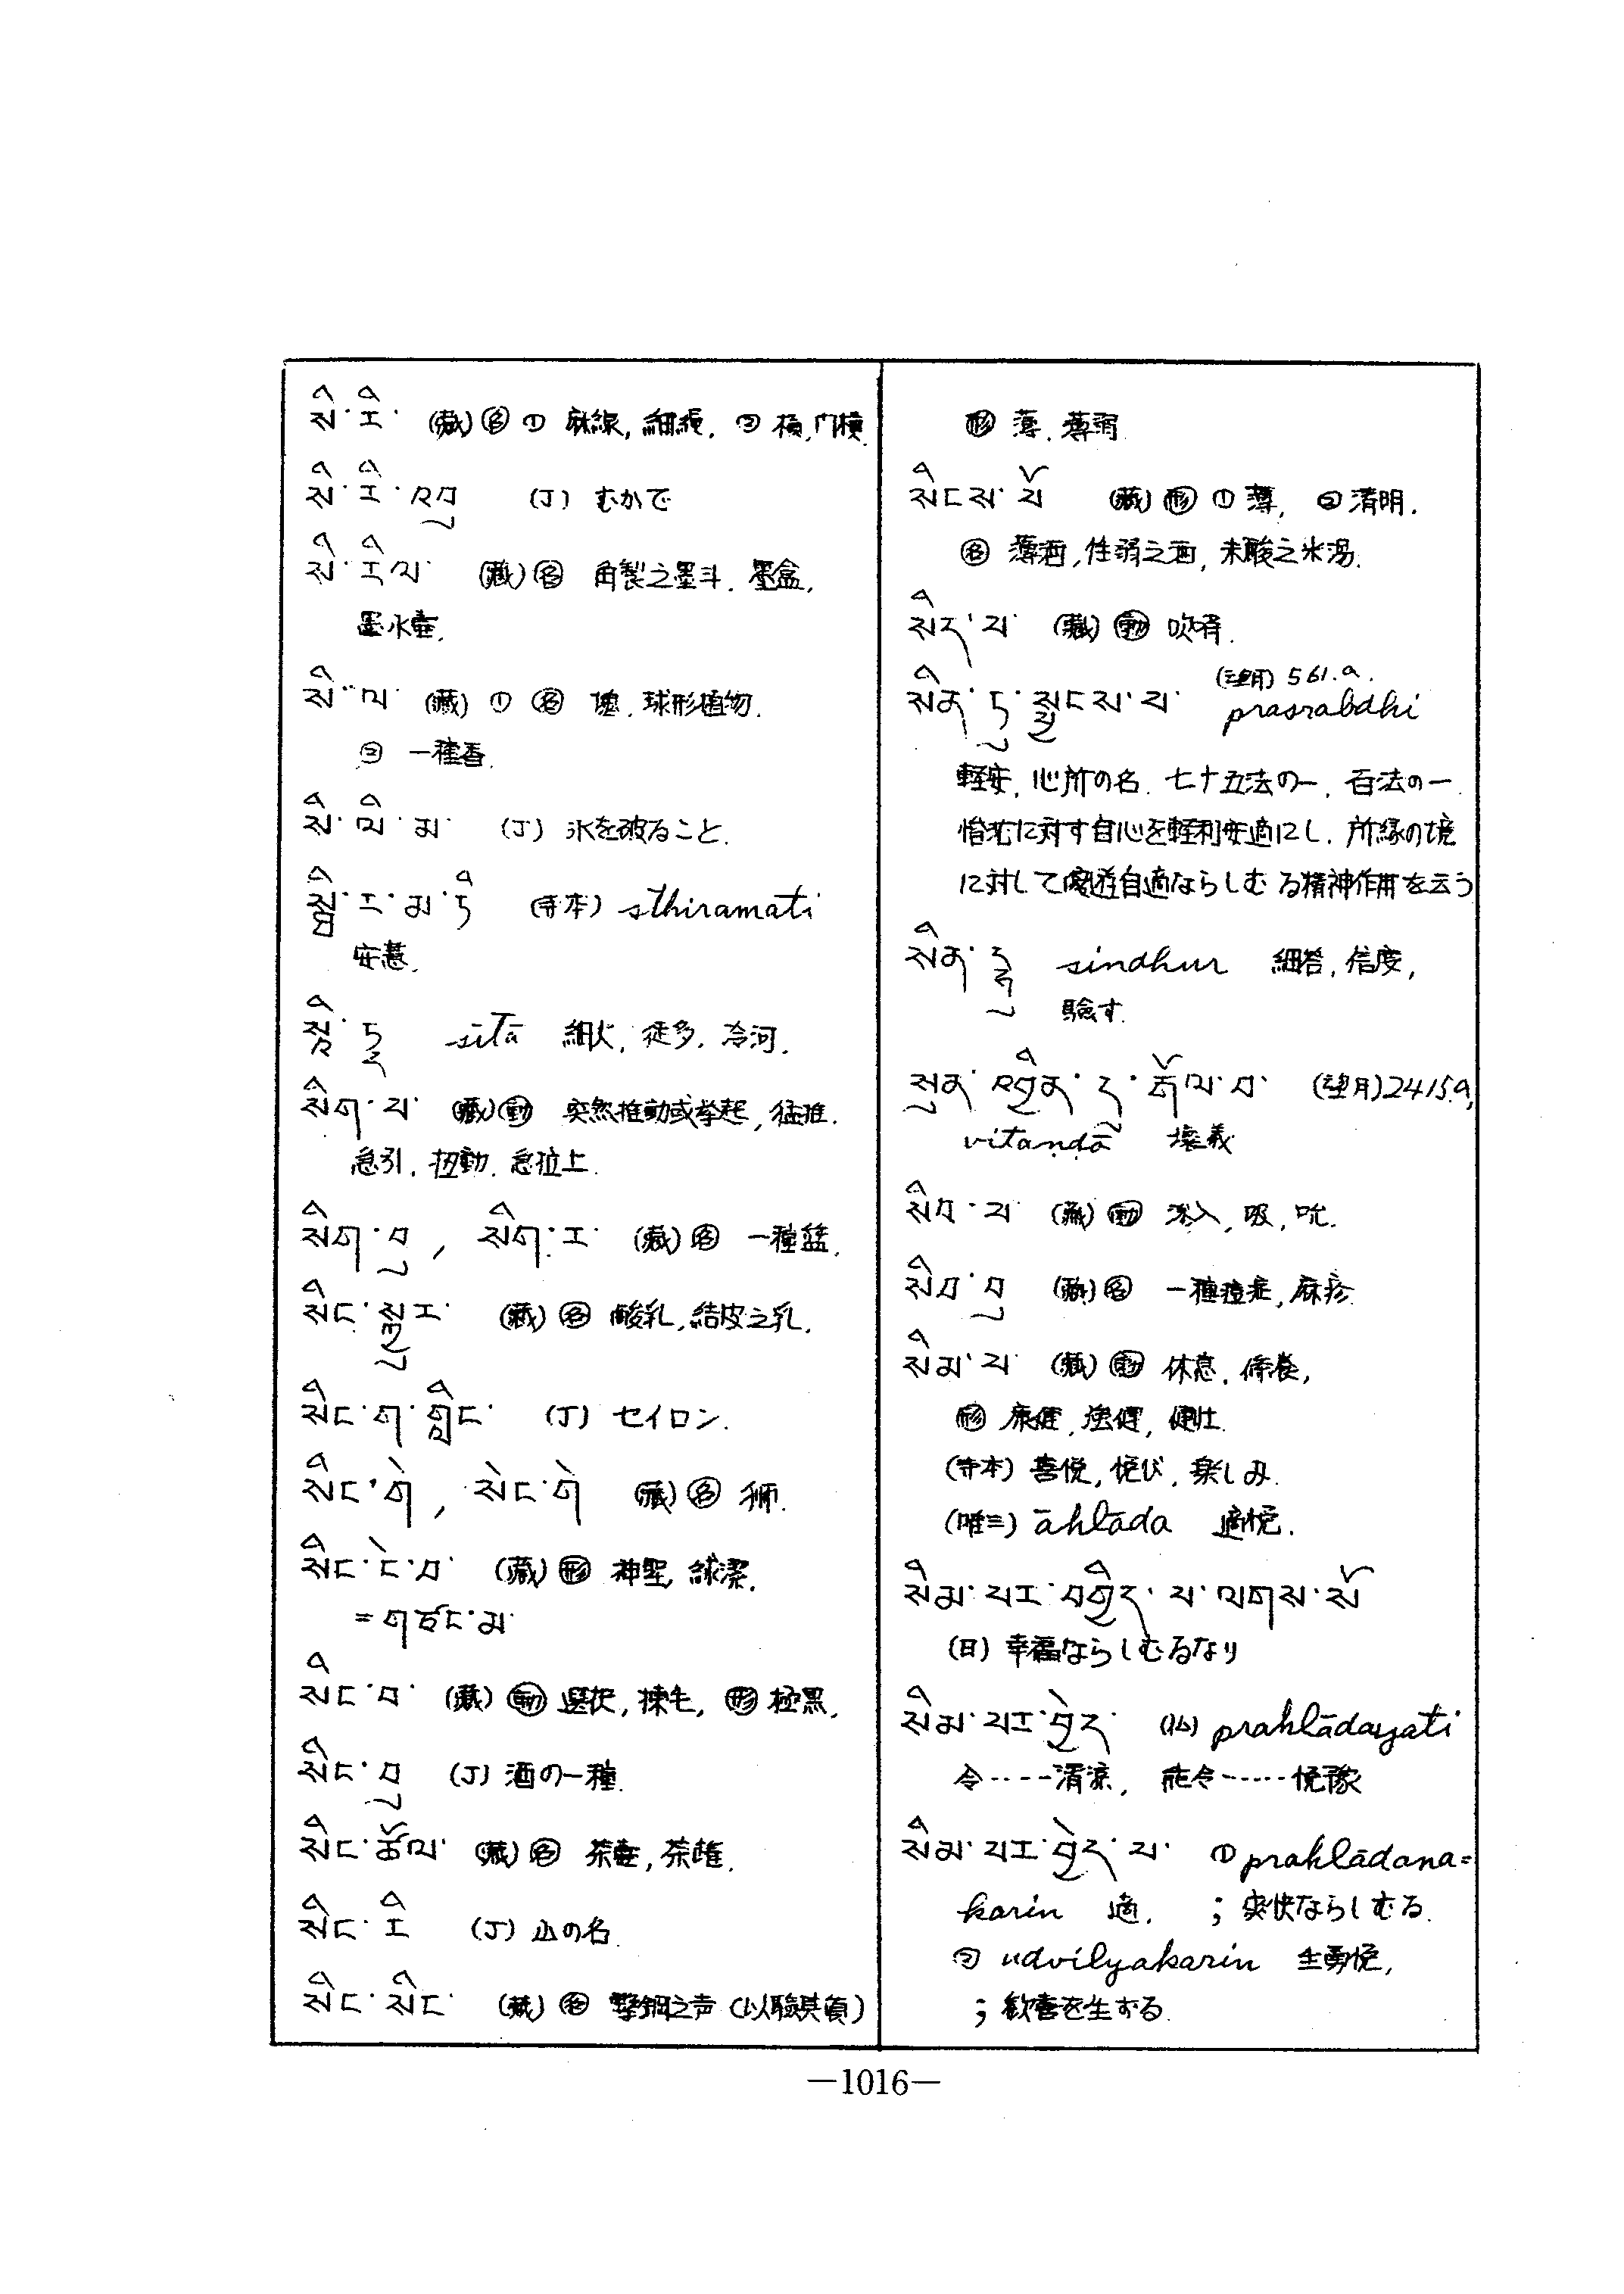 སི་རི་ (蔵)㊔ ① 麻線, 細繩. ②
སི་རི་འབུ (J) むかで
སི་རིལ་ (蔵)㊔ 角製之墨斗. 墨盒,
墨水壷.
སི་ལ་ (蔵) ① ㊔ 球形植物.
② 一種香.
སི་ལི་མ་ (J) 氷を破ること.
སྠི་ར་མ་ཏི (寺本) sthiramati
安慧.
སཱི་ཏཱ sītā 細火, 徒多, 冷河.
སིག་པ་ (蔵)(動) 突然推動或挙起, 猛推.
急引, 扭動. 急拉上.
སིག་བུ, སིག་ར་ (蔵)㊔ 一種籃.
སིང་སྒྲུར་ (蔵)㊔ 酸乳, 結皮之乳.
སིང་ག་གླིང་ (J) セイロン.
སིང་གེ, སེང་གེ (蔵)㊔ 獅.
སིང་ངེ་བ་ (蔵)(形) 神聖, 純潔.
= གཙང་མ་
སིང་བ་ (蔵)(動) 揀生, (形) 極黒,
སིང་བུ (J) 酒の一種.
སིང་ཚོལ་ (蔵)㊔ 茶壷, 茶
སིང་རི (J) 山の名.
སིང་སིང་ (蔵)㊔ 撃鋼之声
(形) 薄, 薄弱
སིངས་པོ (蔵)(形) ① 薄, ② 清明.
㊔ 薄酒, 性弱之酒, 未酸之米湯.
སིད་པ་ (蔵)(動) 吹哨.
(望月) 561.a.
སིན་ཏུ་སྦྱངས་པ་ prasrabdhi
軽安, 心所の名. 七十五法の一, 百法の一.
惛沈に対す自心を軽利安適にし. 所縁の境
に対して優遊自適ならしむる精神作用を云う
སིན་དྷུ sindhur 細, 信度,
験す.
སུན་འབྱིན་དུ་རྒོལ་བ་ (望月)2415.a,
vitaṇḍā 壊義
སིབ་པ་ (蔵)(動) 深入, 吸, 吮.
སིབ་བུ (蔵)㊔ 一種痘, 麻疹.
སིམ་པ་ (蔵)(動) 休息, 修養,
(形) 康健, 強健, 健壮.
(寺本) 喜悦, 悦び, 楽しみ.
(唯三) āhlāda 適悦.
སིམ་པར་བགྱིད་པ་ལགས་སོ
(日) 幸福ならしむるなり
སིམ་པར་བྱེད་ (仏) prahlādayati
令‥‥清涼, 能令‥‥悦豫
སིམ་པར་བྱེད་པ་ ① prahlādana=
karin 適. ; 爽快ならしむる.
② udvilyakarin 生勇悦,
; 歓喜を生ずる.
—1016—